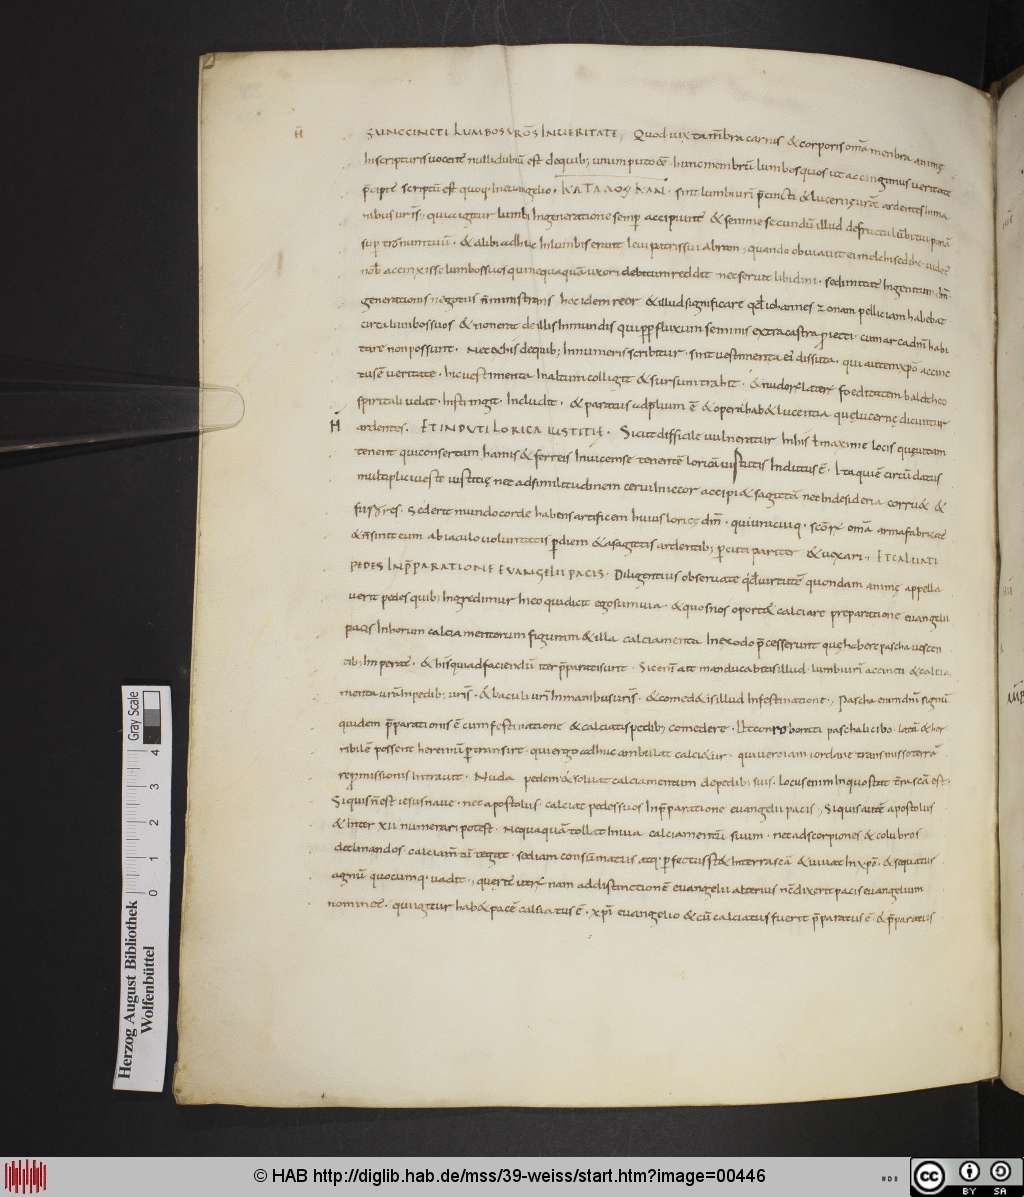 SUNCCINCTI LUMBOS UROS IN UERITATE, Quod iuxta mēbra carnis & corporis omā menbra animę
In scripturis uocent nulli dubiū est de quib; unum puto ee hunc membrū lumbos quos ut accingimus ueritate
scriptū est quoq. in euangelio. KATA ΛΟΥΚΑΝ. sint lumbi uri p̄cincti & lucernę uræ ardentes in ma
nibus uris; qui igitur lumbi in generatione semp accipiunt & semine secundū illud de fructu uentris tui ponā
sup tronum tuū. & alibi adhuc in lumbis erat leui patris sui abram, quando obuiauit ei melchisedehc uides
accinxisse lumbos suos qui nequaquā uxori debitum reddit nec seruit libidini. sed
generationis negotiis ministrans hoc idem reor & illud significare qd iohannes zonam pelliciam habebat
circa lumbos suos & uenerat de illis inmundis qui pp fluxum seminis extra castra piecti. cum arca dni habi
tare non possunt. Nec ex his de quib; in numeris scribitur. sint uestimenta ei dissuta. qui autem in xpo accinc
tus ē ueritate. hic uestimenta in altum colligit & sursum trahit. & nudor later foeditatem baldeheo
spiritali uelat. Instringit. Includit. & paratus ad pluim ē & operib hab& lucentia quę lucernę dicuntur
ardentes. ET INDUTI LORICA IUSTITIĘ. Sicut difficile uulneratur in his t maxime locis quę uitam
tenent qui consertam hamis & ferreis inuicem se tenentē loricā iustitiis indutus ē. Ita qui ē circūdatus
multiplici ueste iustitię nec ad similitudinem cerui in iecor accipi& sagittā nec in desideria corru& &
furores. Sed erit mundo corde habens artificem huius loricę dm. qui unicuiq. scōr omā arma fabricat
& ñ sint cum ab iaculo uoluntatis p diem & a sagittis ardentib; percuti pariter & uexari. ET CALCIATI
PEDES IN PRAEPARATIONE EUANGELII PACIS. Diligentius obseruate qd uirtutē quondam animę appella
uerit pedes quib; ingredimur in eo qui dicit ego sum uia. & quos nos oport& calciare preparatione euangelii
pacis in horum calciamentorum figuram & illa calciamenta in exodo p̄cesserunt quę habere pascha uescen
tib; imperat. & his qui ad faciendū iter p̄parati sunt. Sic enī ait manducabitis illud. lumbi uri accincti & calcia
menta urā in pedib; uris. & baculi uri in manibus uris. & comed&is illud in festinatione, Pascha enim dni signū
quidem p̄parationis ē cum festinatione & calciatis pedib; comedere. Ut conroborati paschali cibo. latā & hor
ribilē possent heremū p transire. qui ergo adhuc ambulat calci&ur. qui uero iam iordane transmisso terrā
repmissionis intrauit. Nuda pedem & soluat calciamentum de pedib; suis. Locus enim in quo stat terra scā est.
Si quis ñ est iesus naue. nec apostolus. calciat pedes suos in p̄paratione euangelii pacis, Si quis autē apostolus
& inter xii numerari potest. Nequaquā tollat in uia calciamentū suum. nec ad scorpiones & colubros
declinandos. calciam̄tū tegat. sed iam consūmatus atq. p fectus st& in terra scā & uiuat in xpo. & sequatur
agnū quocumq. uadit, quęrit uere nam ad distinctionē euangelii alterius nc̄ dixerit pacis euangelium
nominet. qui igitur hab& pacē calciatus ē. xpi euangelio & cū calciatus fuerit p̄paratus ē & p̄paratus
Gray Scale
0 1 2 3 4
Herzog August Bibliothek
Wolfenbüttel
© HAB http://diglib.hab.de/mss/39-weiss/start.htm?image=00446
cc BY SA